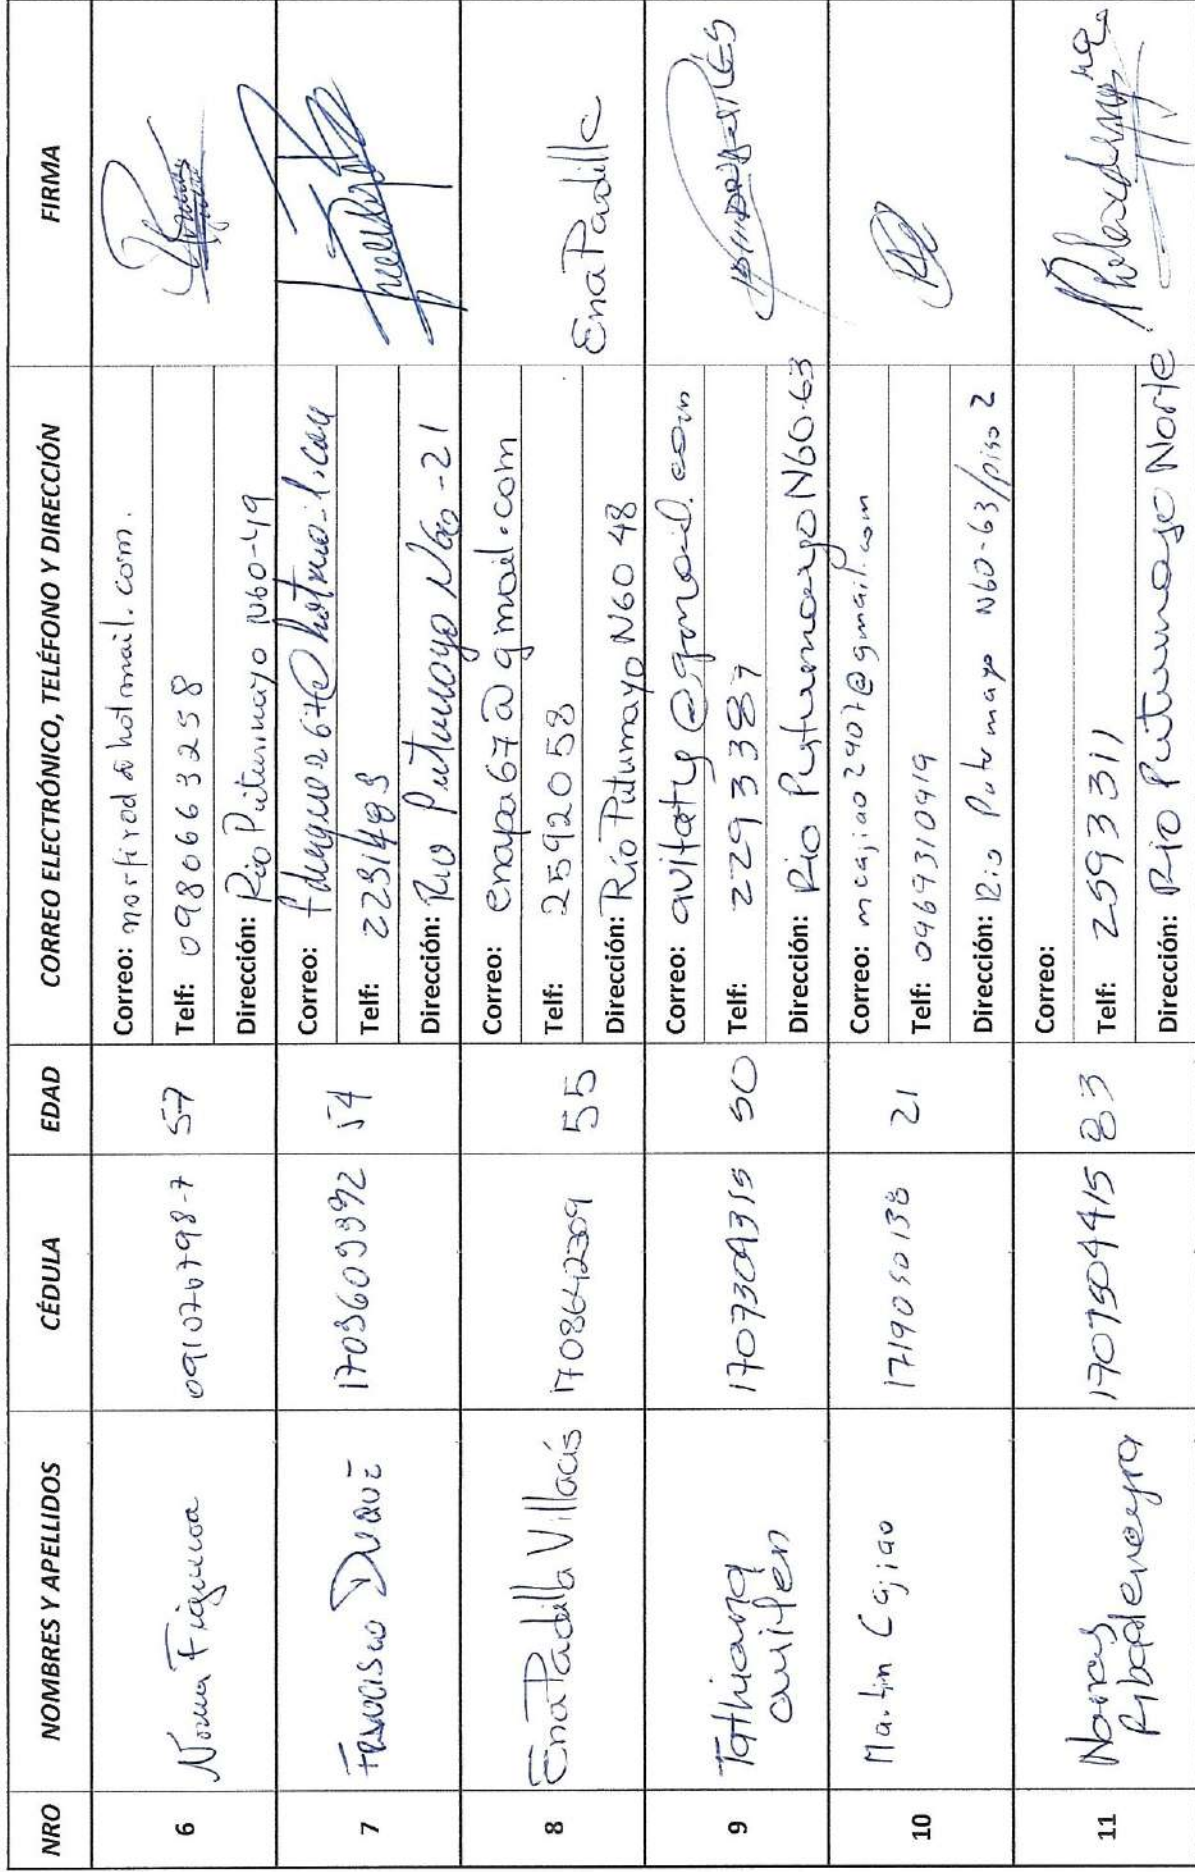 NRO NOMBRES Y APELLIDOS CÉDULA EDAD CORREO ELECTRÓNICO, TELÉFONO Y DIRECCIÓN FIRMA
6 Norma Figueroa 57
Correo: norfirod@hotmail.com.
Telf: 0980663258
Dirección: Rio Putumayo N60-49
7 Francisco 1703609392 54
Correo: @hotmail.com
Telf: 2231493
Dirección: Rio Putumayo N60-21
8 Ena Padilla Villacís 1708642309 55
Correo: enapa67@gmail.com
Telf: 2592058
Dirección: Río Putumayo N60 48
Ena Padilla
9 Tathiana 1707309315 50
Correo: avitaty@gmail.com
Telf: 2293387
Dirección: Rio Putumayo N60-63
10 Martin Cajiao 1719050138 21
Correo: mcajiao2907@gmail.com
Telf: 0969310919
Dirección: Rio Putumayo N60-63/piso 2
11 Ribadeneyra 1707504415 83
Correo:
Telf: 2593311
Dirección: Rio Putumayo Norte